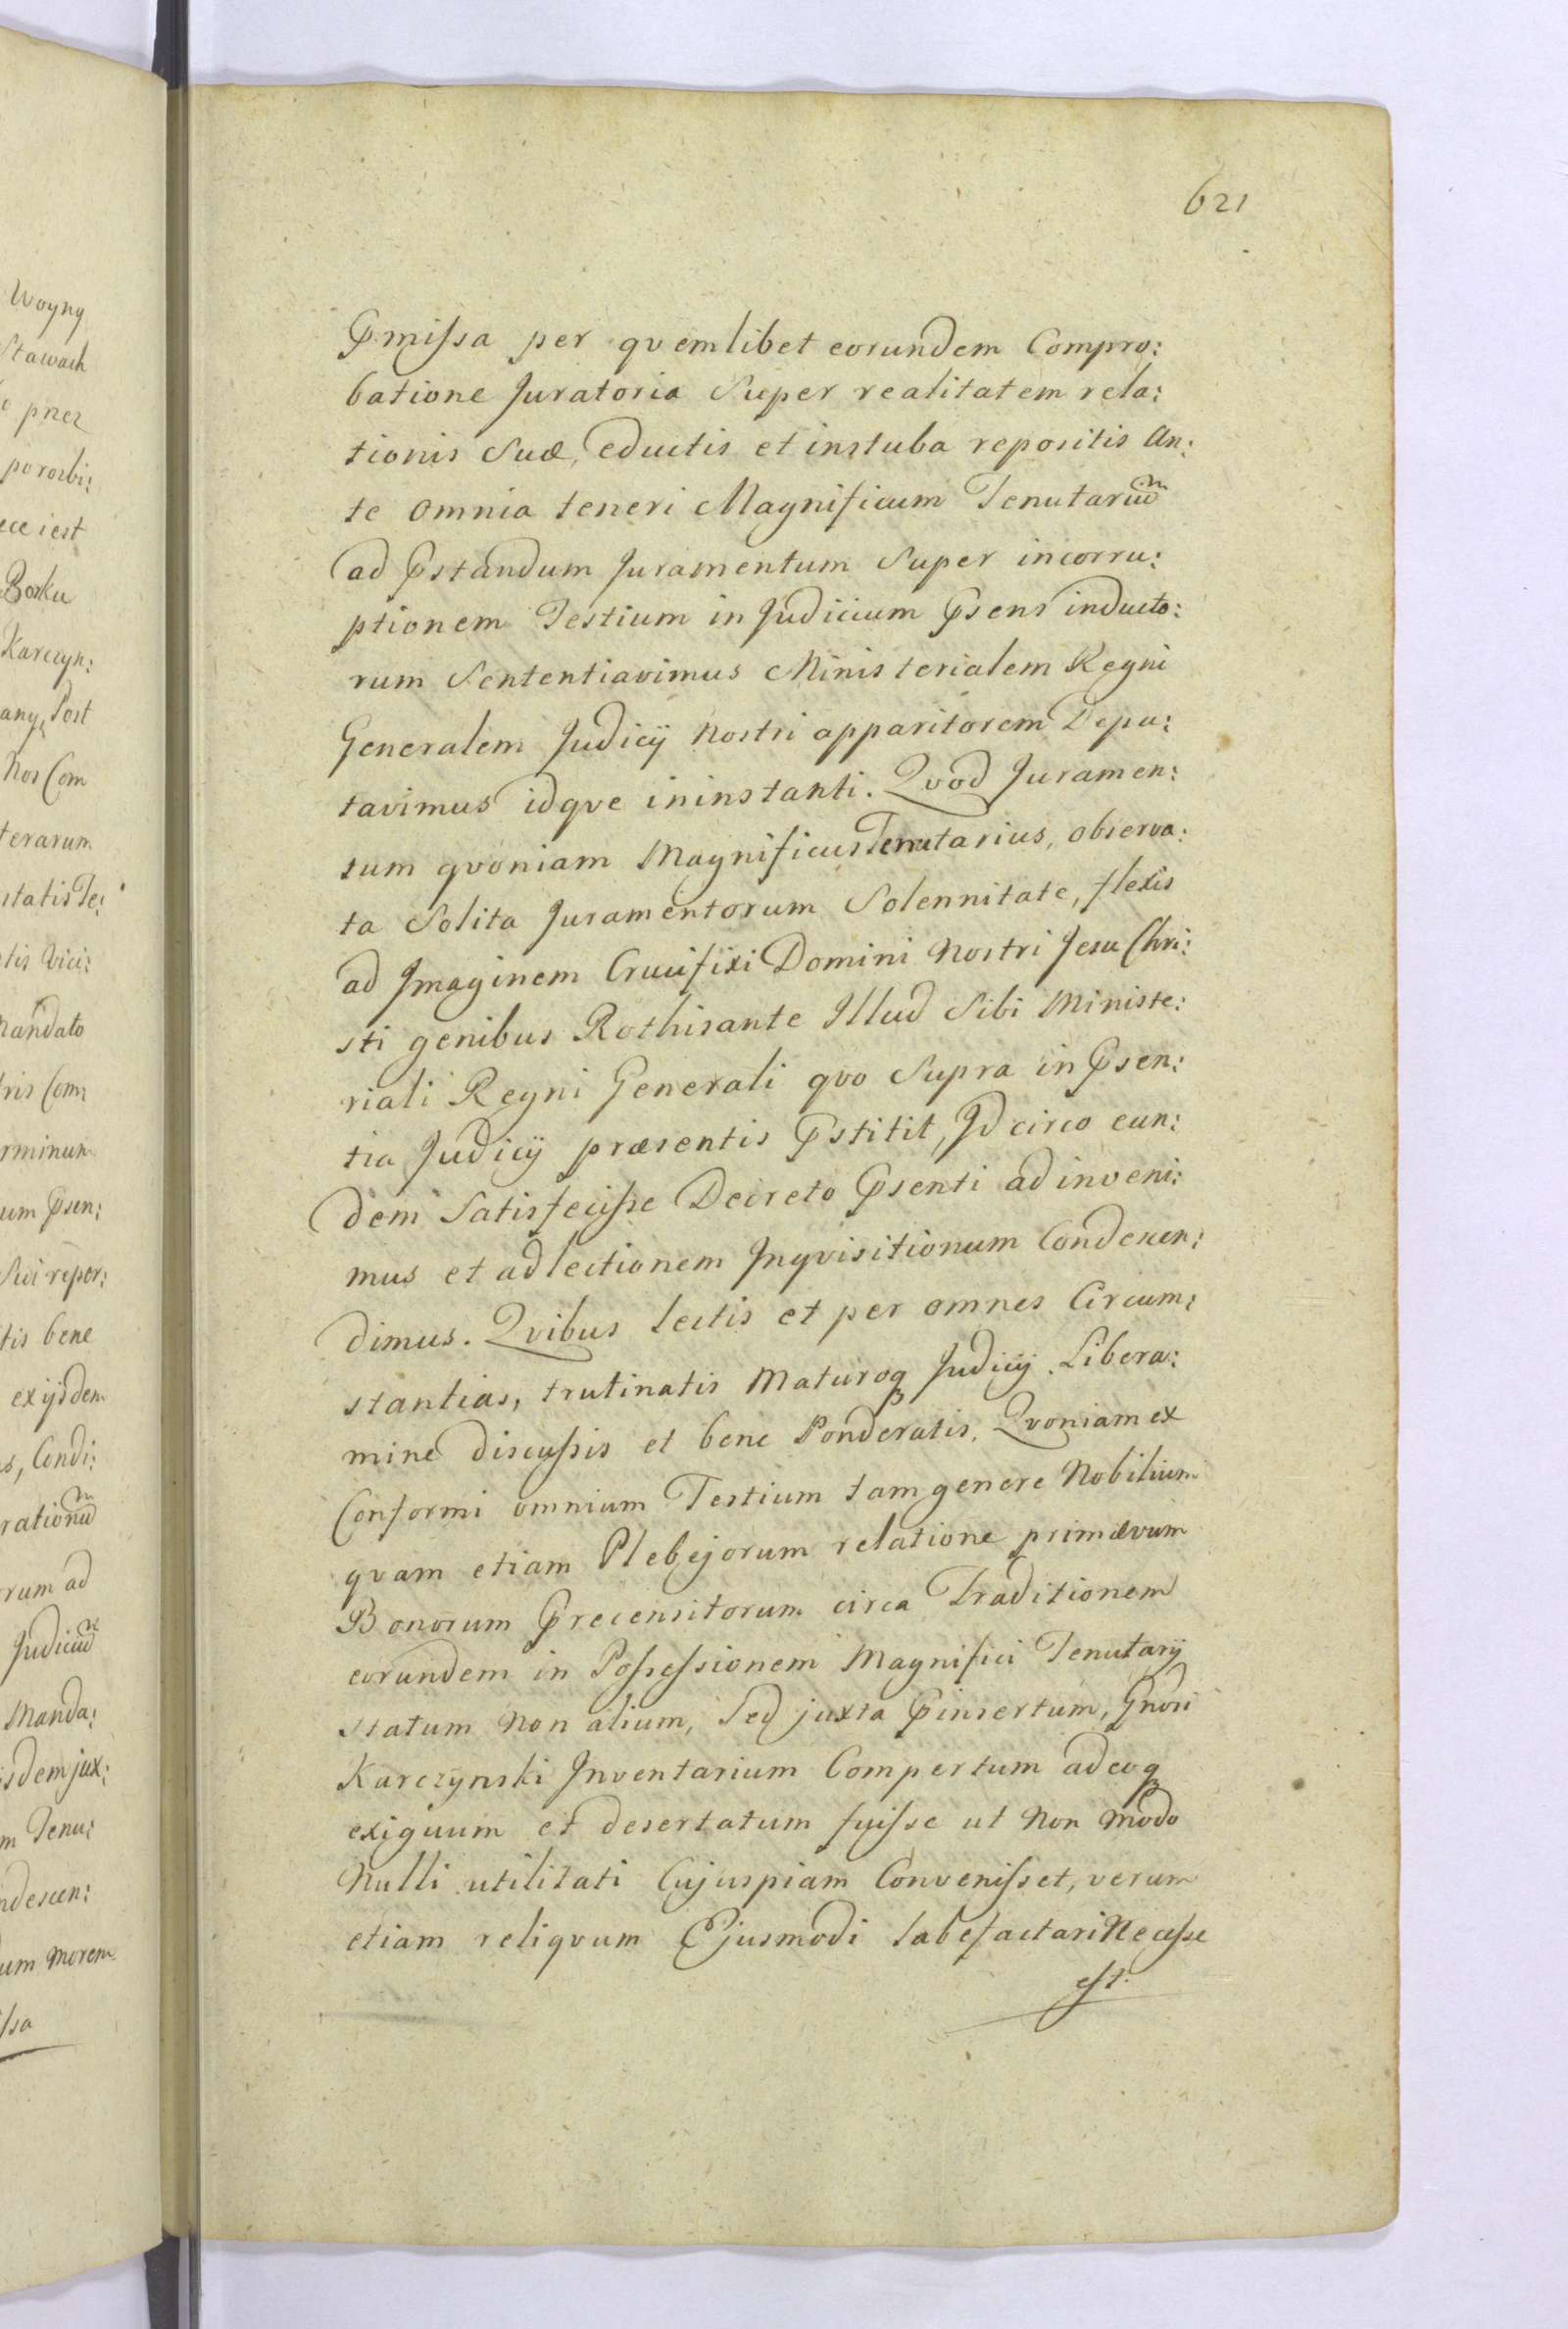 621
Pmissa per qvemlibet eorundem Compro:
batione Juratoria Super realitatem rela:
tionis Suæ, eductis et instuba repositis An:
te omnia teneri Magnificum Tenutariu͠m
ad Pstandum Juramentum Super incorru:
ptionem Testium in Judicium Psens inducto:
rum Sententiavimus Ministerialem Regni
Generalem Judicÿ Nostri apparitorem Depu:
tavimus idqve ininstanti. Qvod Juramen:
tum qvoniam Magnificus Tenutarius, observa:
ta Solita Juramentorum Solennitate, flexis
ad Imaginem Crucifixi Domini Nostri Jesu Chri:
sti genibus Rothisante Illud Sibi Ministe:
riali Regni Generali qvo Supra in Psen:
tia Judicÿ præsentis Pstitit, Id circo eun:
dem Satisfecisse Decreto Psenti ad inveni:
mus et ad lectionem Inqvisitionum Condescen:
dimus. Qvibus lectis et per omnes Circum:
stantias, trutinatis Maturoq Judicÿ Libera:
mine discussis et bene Ponderatis. Qvoniam ex
Conformi omnium Testium tam genere Nobilium
qvam etiam Plebejorum relatione primævum
Bonorum Precensitorum circa Traditionem
eorundem in Possessionem Magnifici Tenutarÿ
statum Non alium, Sed juxta Pinsertum, Gnosi
Karczynski Inventarium Compertum adeoq
exiguum et desertatum fuisse ut Non modo
Nulli utilitati Cujuspiam Convenisset, verum
etiam reliqvum Ejusmodi labefactari Necesse
est.
Woyny
Stawach
pnez
porosbi:
iest
Borku
Karczyn:
Post
Nos Com
terarum
statis Te:
tis Vici:
Mandato
ris Com:
rminum
um Psen:
Sui repor:
tis bene
exijsdem
s, Condi:
rationu͠m
rum ad
Judiciu͠m
Manda:
isdem jux:
m Tenu:
ndescen:
um Morem
ssa